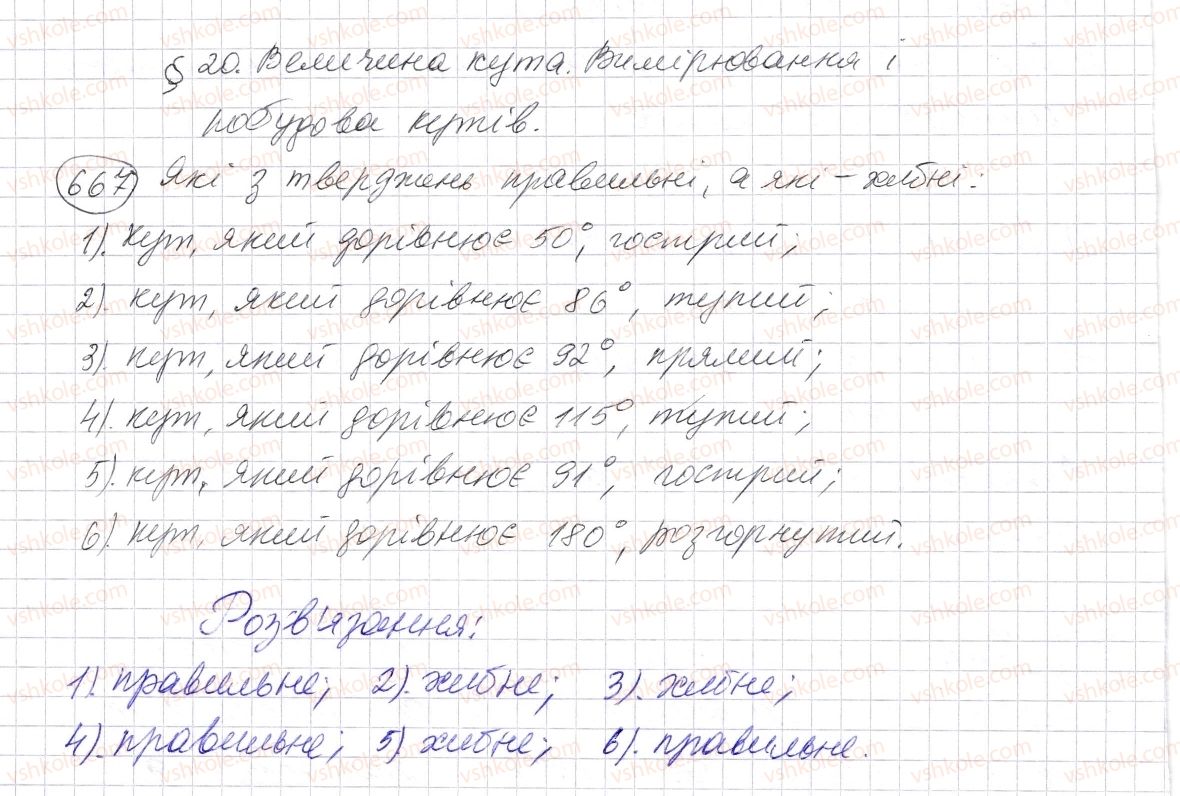 § 20. Величина кута. Вимірювання і
побудова кутів.
667 Які з тверджень правильні, а які – хибні:
1). кут, який дорівнює 50°, гострий;
2). кут, який дорівнює 86°, тупий;
3). кут, який дорівнює 92°, прямий;
4). кут, який дорівнює 115°, тупий;
5). кут, який дорівнює 91°, гострий;
6). кут, який дорівнює 180°, розгорнутий.
Розв'язання:
1). правильне; 2). хибне; 3). хибне;
4). правильне; 5) хибне; 6). правильне.